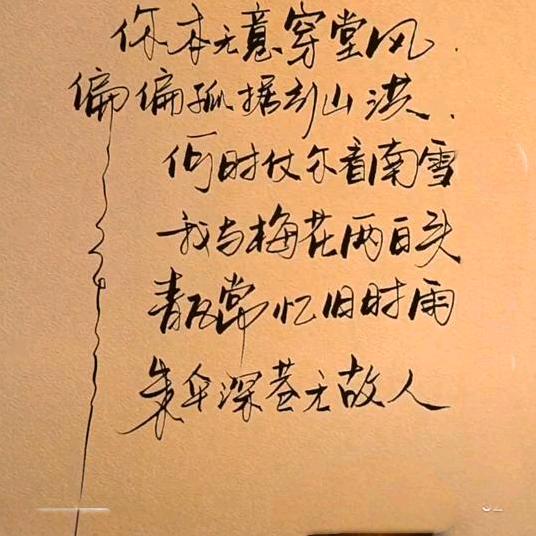 你本无意穿堂风.
偏偏孤据引山洪.
何时仗尔看南雪
我与梅花两白头
青瓦常忆旧时雨
朱伞深巷无故人